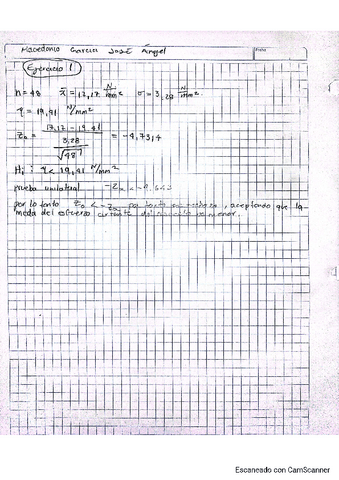 Macedonio Garcia José Ángel
Fecha
Ejercicio 1
n=48 x̄=17,17 N/mm² σ=3,28 N/mm²
η = 19,41 N/mm²
Z₀ = (17,17 - 19,41) / (3,28/√48) = -4,7314
H₁ : η < 19,41 N/mm²
prueba unilateral -Zα
por lo tanto Z₀ < -Zα por lo tanto , aceptando que la
media del esfuerzo cortante es menor.
Escaneado con CamScanner